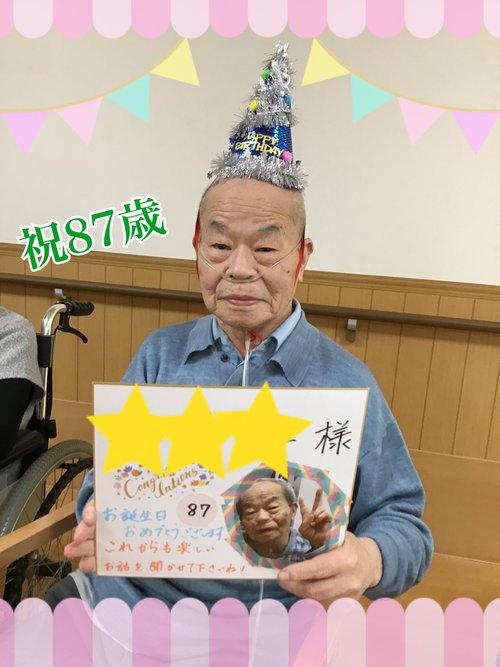 HAPPY
BIRTHDAY
祝87歳
様
Congratulations
お誕生日
87
おめでとうございます。
これからも楽しい
お話を聞かせて下さいね!